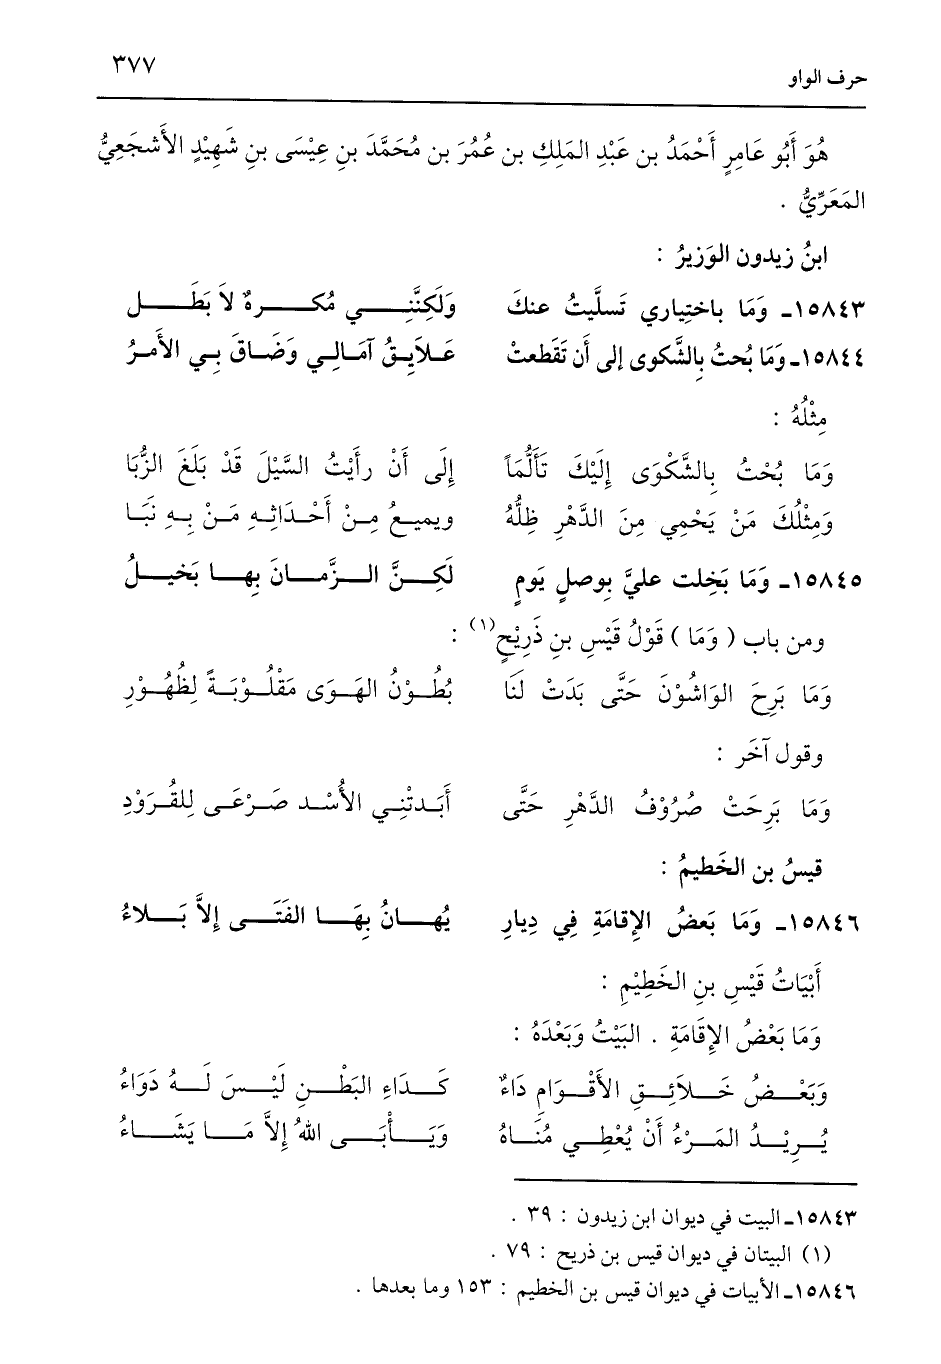 حرف الواو ٣٧٧
هُوَ أَبُو عَامِرٍ أَحْمَدُ بن عَبْدِ المَلِكِ بن عُمُرَ بن مُحَمَّدَ بنِ عِيْسَى بنِ شَهِيْدٍ الأَشجَعِيُّ
المَعَرِّيُّ .
ابنُ زيدون الوَزيرُ :
١٥٨٤٣ـ وَمَا باختِياري تَسلَّيتُ عنكَ وَلَكِنَّنِـــــي مُكــــرهٌ لاَ بَطَــــل
١٥٨٤٤ـ وَمَا بُحتُ بِالشَّكوى إلى أن تَقَطعتْ عَــلاَيِقُ آمَـالِي وَضَـاقَ بِـي الأَمـرُ
مِثْلُهُ :
وَمَا بُحْتُ بِالشَّكْوَى إِلَيْكَ تَأَلُّمَاً إِلَى أَنْ رأَيْتُ السَّيْلَ قَدْ بَلَغَ الزُّبَا
وَمِثْلُكَ مَنْ يَحْمِي مِنَ الدَّهْرِ ظِلُّهُ ويميـعُ مِـنْ أَحْـدَاثِـهِ مَـنْ بِـهِ نَبَـا
١٥٨٤٥ـ وَمَا بَخِلت عليَّ بِوصلٍ يَومٍ لَكِــنَّ الــزَّمــانَ بِهــا بَخيــلُ
ومن باب ( وَمَا ) قَوْلُ قَيْسِ بنِ ذَرِيْحٍ(١) :
وَمَا بَرِحَ الوَاشُوْنَ حَتَّى بَدَتْ لَنَا بُطُـوْنُ الهَـوَى مَقْلُـوْبَـةً لِظُهُـوْرِ
وقول آخَر :
وَمَا بَرِحَتْ صُرُوْفُ الدَّهْرِ حَتَّى أَبَـدتْنِـي الأُسْـد صَـرْعَـى لِلقُـرَوْدِ
قيسُ بن الخَطيمُ :
١٥٨٤٦ـ وَمَا بَعضُ الإِقامَةِ فِي دِيارِ يُهــانُ بِهَــا الفَتَــى إِلاَّ بَــلاءُ
أَبْيَاتُ قَيْسِ بنِ الخَطِيْمِ :
وَمَا بَعْضُ الإِقَامَةِ . البَيْتُ وَبَعْدَهُ :
وَبَعْــضُ خَــلاَئِــقِ الأَقْــوَامِ دَاءٌ كَــدَاءِ البَطْــنِ لَيْــسَ لَــهُ دَوَاءُ
يُــرِيْــدُ المَــرْءُ أَنْ يُعْطِــي مُنَــاهُ وَيَــأْبَــى اللهُ إِلاَّ مَــا يَشَــاءُ
١٥٨٤٣ـ البيت في ديوان ابن زيدون : ٣٩ .
(١) البيتان في ديوان قيس بن ذريح : ٧٩ .
١٥٨٤٦ـ الأبيات في ديوان قيس بن الخطيم : ١٥٣ وما بعدها .